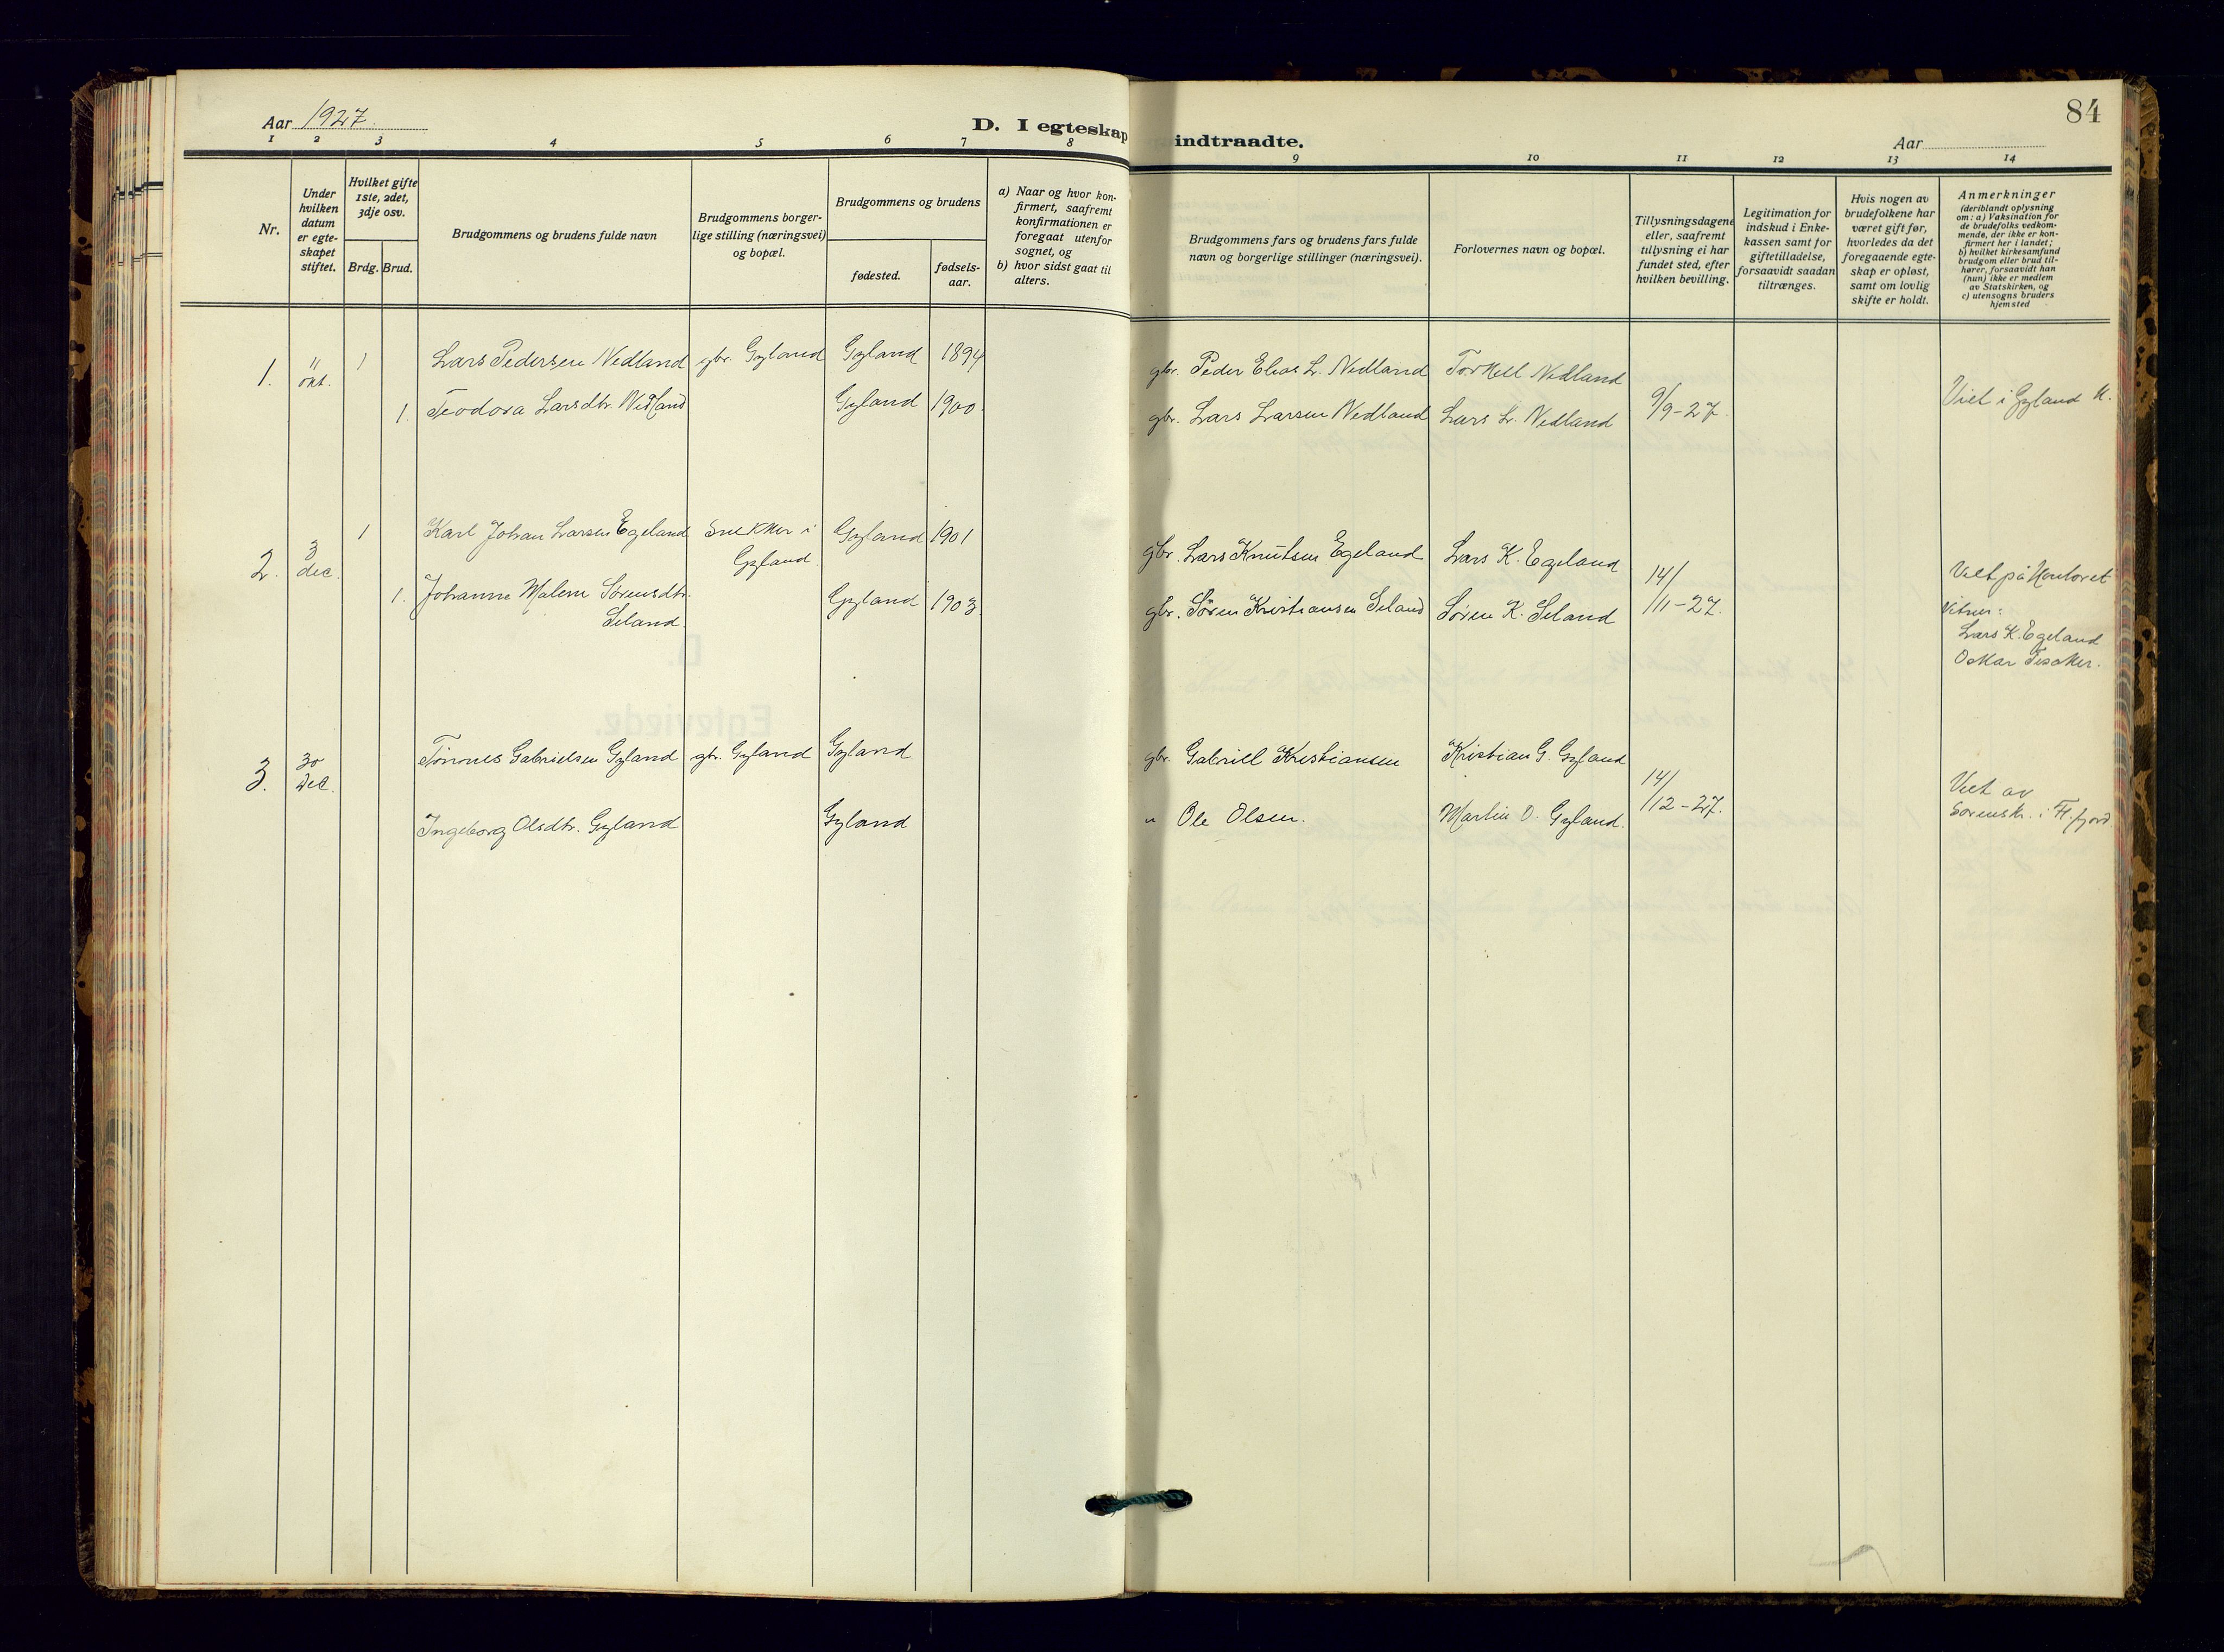 Aar 1927.
D. I egteskap indtraadte.
Aar
84
1 2 3 4 5 6 7 8 9 10 11 12 13 14
Nr.
Under
hvilken
datum
er egte-
skapet
stiftet.
Hvilket gifte
1ste, 2det,
3dje osv.
Brdg. Brud.
Brudgommens og brudens fulde navn
Brudgommens borger-
lige stilling (næringsvei)
og bopæl.
Brudgommens og brudens
fødested.
fødsels-
aar.
a) Naar og hvor kon-
firmert, saafremt
konfirmationen er
foregaat utenfor
sognet, og
b) hvor sidst gaat til
alters.
Brudgommens fars og brudens fars fulde
navn og borgerlige stillinger (næringsvei).
Forlovernes navn og bopæl.
Tillysningsdagene
eller, saafremt
tillysning ei har
fundet sted, efter
hvilken bevilling.
Legitimation for
indskud i Enke-
kassen samt for
giftetilladelse,
forsaavidt saadan
tiltrænges.
Hvis nogen av
brudefolkene har
været gift før,
hvorledes da det
foregaaende egte-
skap er opløst,
samt om lovlig
skifte er holdt.
Anmerkninger
(deriblandt oplysning
om: a) Vaksination for
de brudefolks vedkom-
mende, der ikke er kon-
firmert her i landet;
b) hvilket kirkesamfund
brudgom eller brud til-
hører, forsaavidt han
(hun) ikke er medlem
av Statskirken, og
c) utensogns bruders
hjemsted
1. okt. 1 Lars Pedersen Nedland gbr. Gyland Gyland 1894 gbr. Peder Elias L. Nedland Torkell Nedland
1. Teodora Larsdtr. Nedland Gyland 1900. gbr. Lars Larsen Nedland Lars L. Nedland 9/9-27. Viet i Gyland K.
2. 3 dec. 1 Karl Johan Larsen Egeland Snekker i Gyland 1901 gbr. Lars Knutsen Egeland Lars K. Egeland
Gyland.
14/11-27. Viet på kontoret
1. Johanne Malene Sørensdtr. Gyland 1903. gbr. Søren Kristiansen Seland Søren K. Seland
Seland.
Vitner:
Lars K. Egeland
Oskar
3. 30 Dec. Tønnes Gabrielsen Gyland gbr. Gyland Gyland gbr. Gabriell Kristiansen Kristian G. Gyland
14/12-27. Viet av
Sorenskr. i Fl.fjord
Ingeborg Olsdtr. Gyland Gyland " Ole Olsen. Martin O. Gyland.